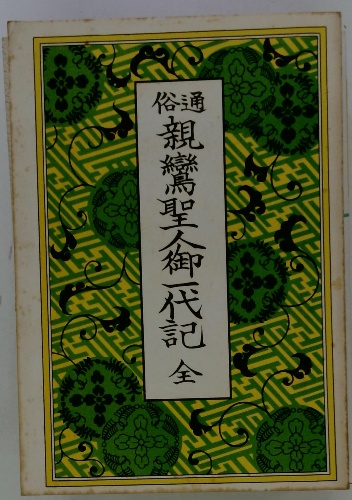 通俗
親鸞聖人御一代記
全